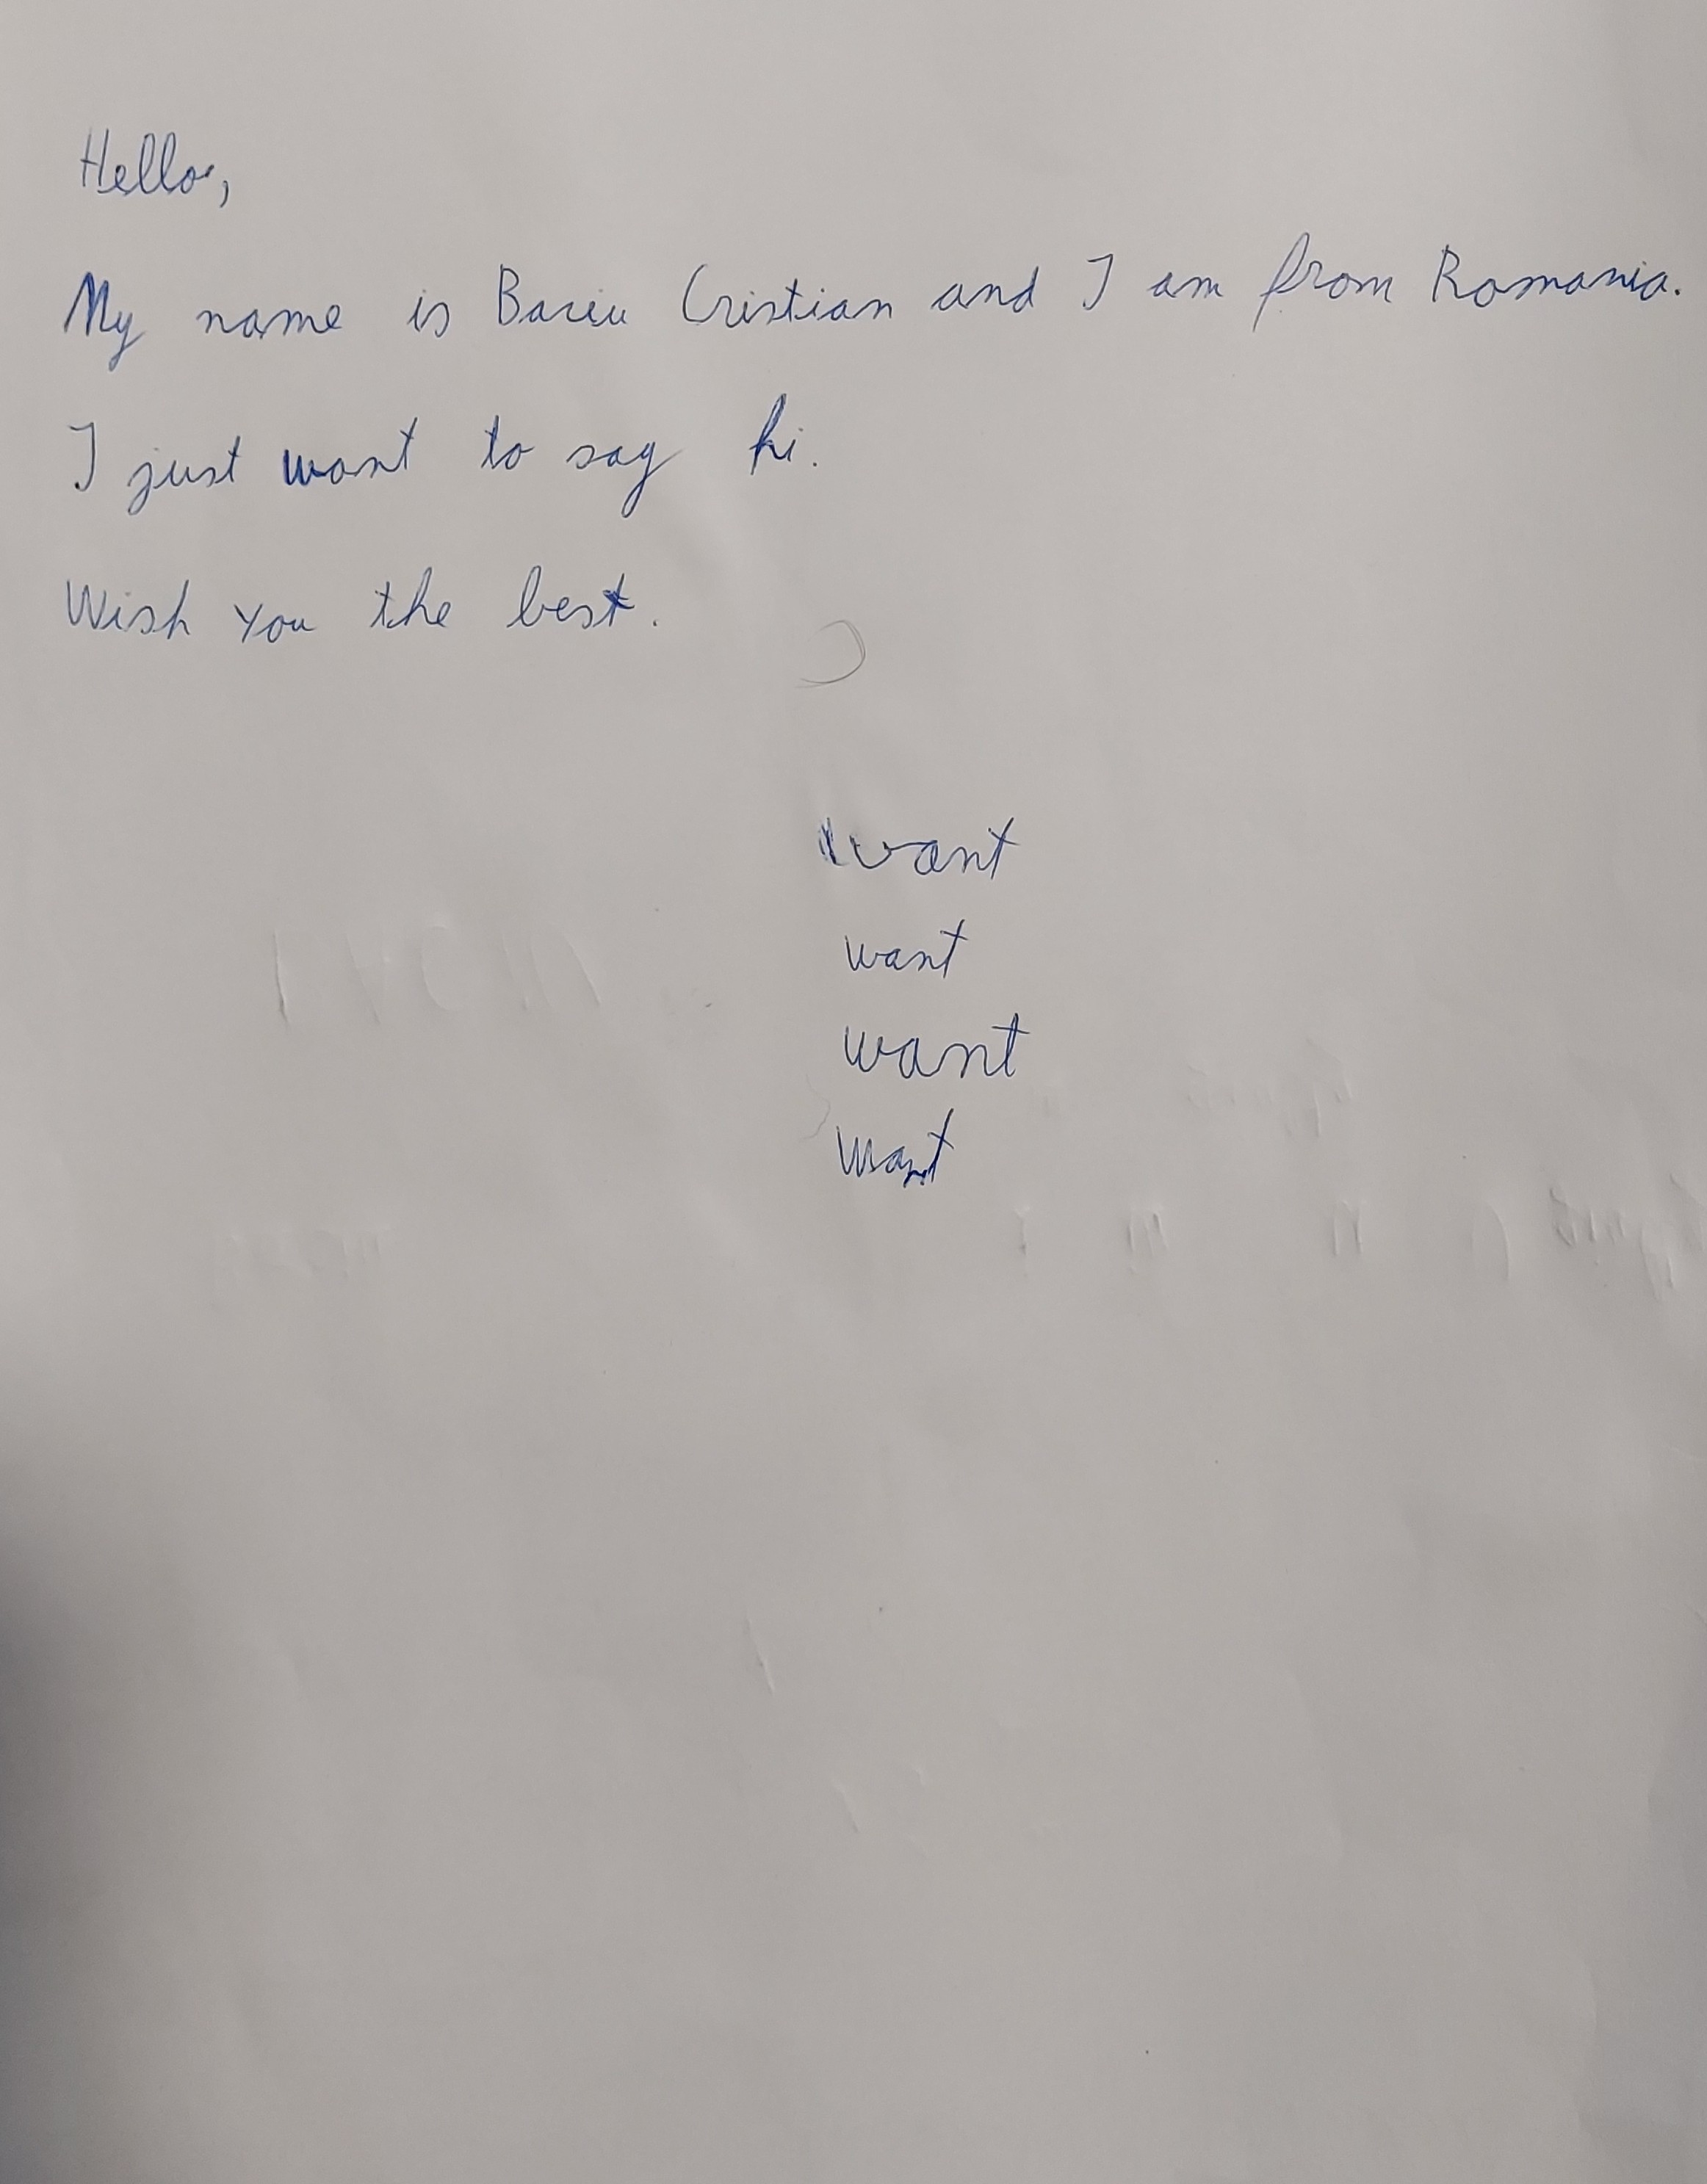 Hello,
My name is Baciu Cristian and I am from Romania.
I just want to say hi.
Wish you the best.
want
want
want
want